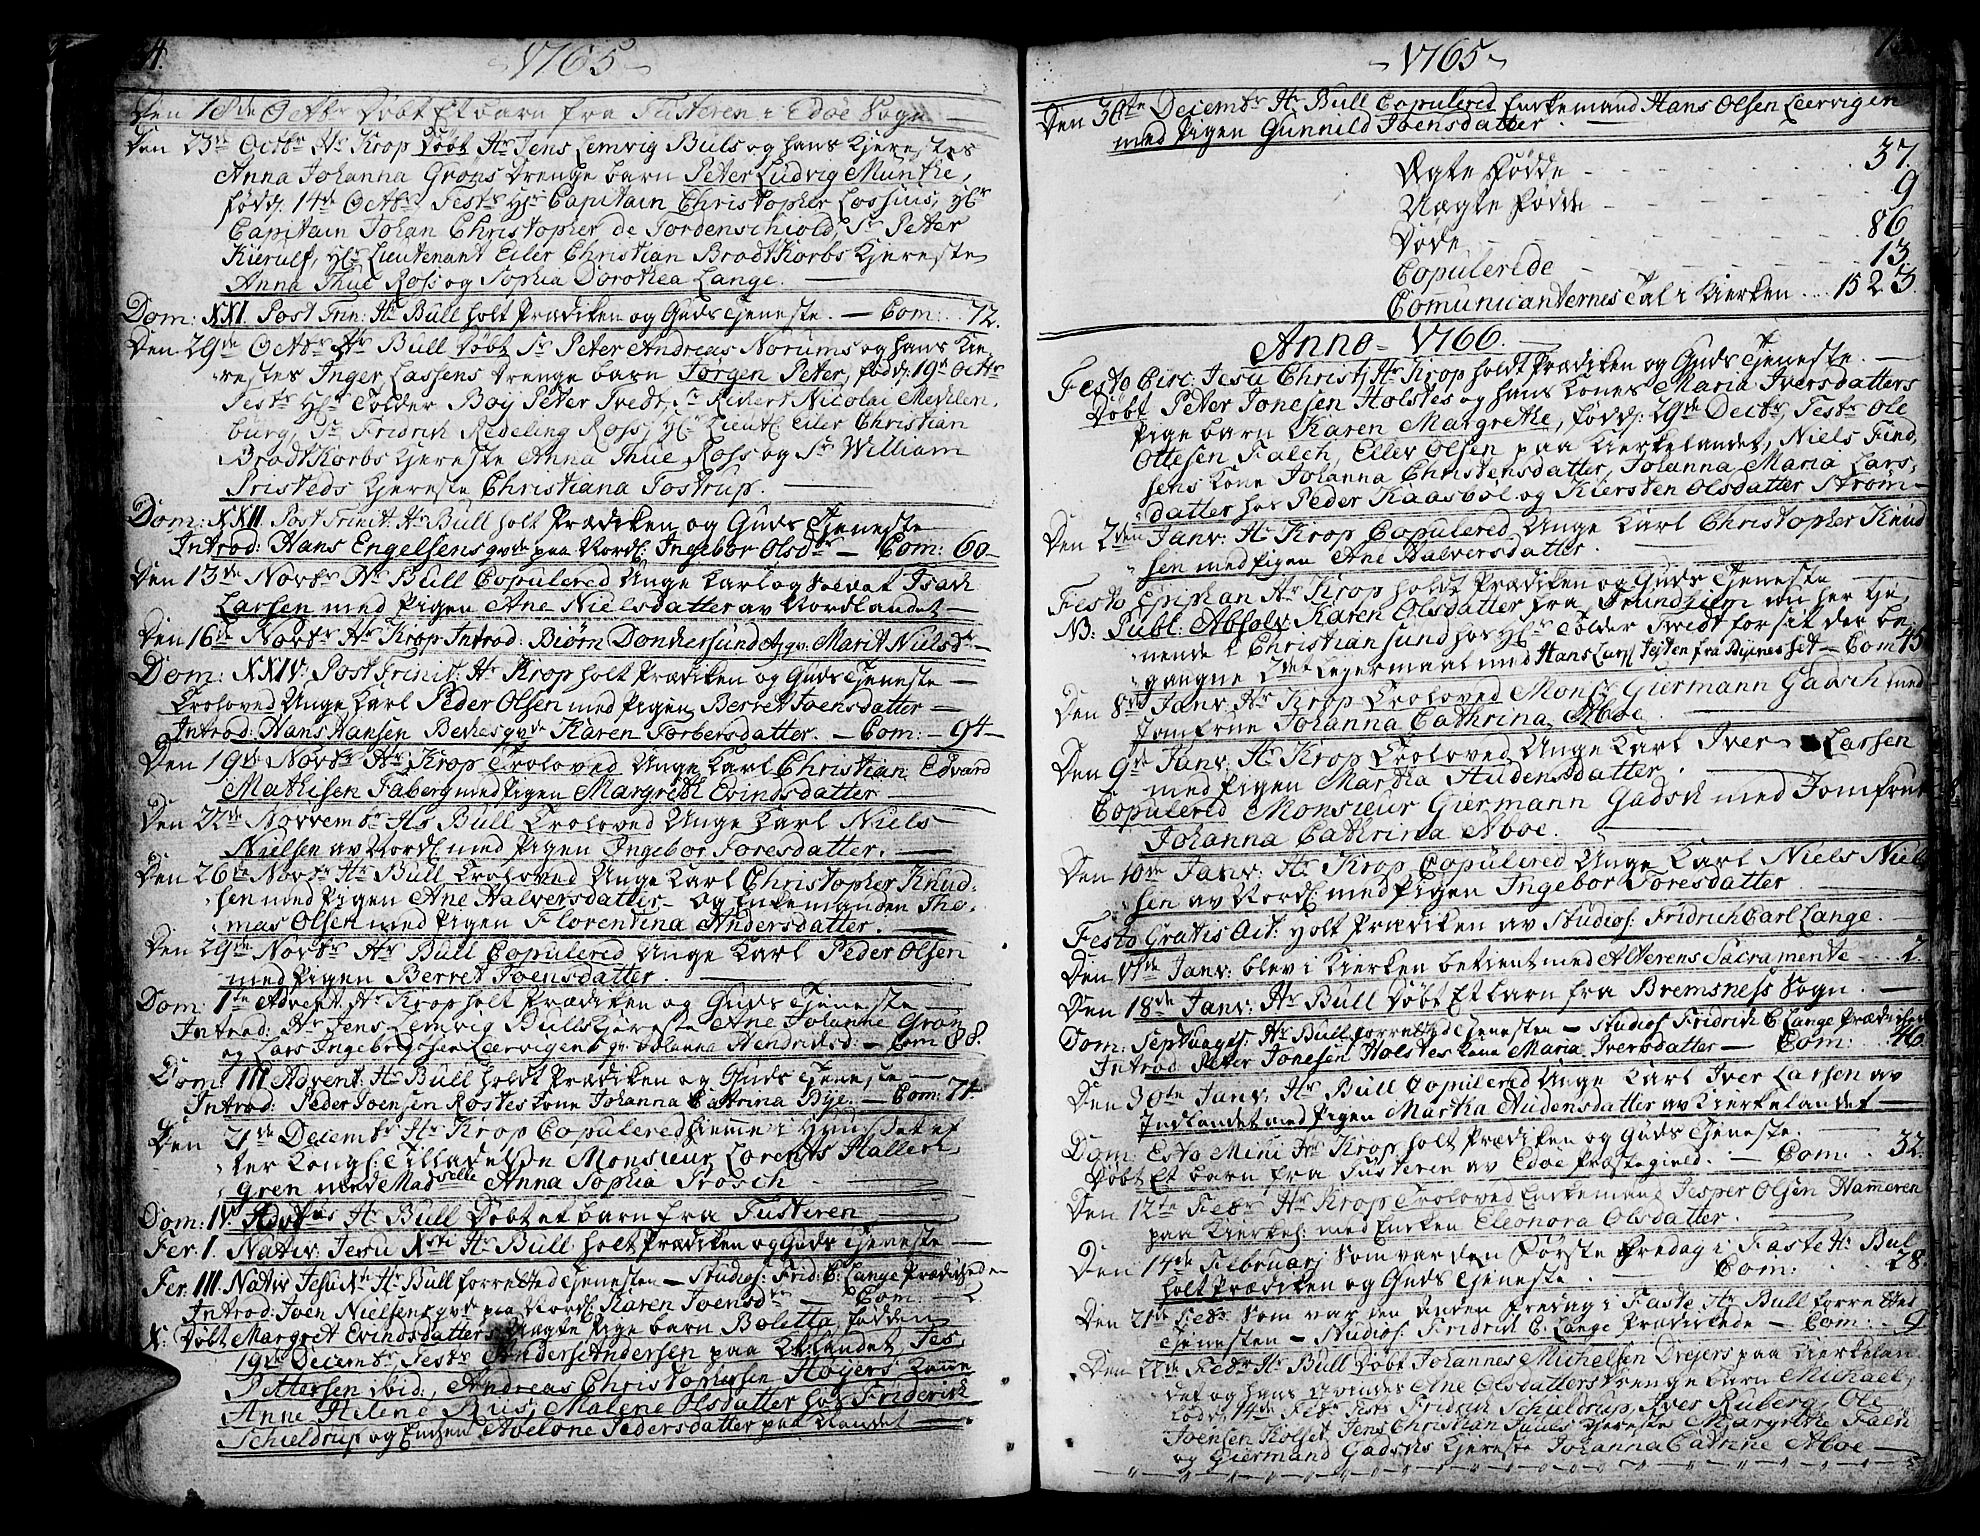 4.
-1765-
Den 18de Octbr Døbt Et barn fra Tusteren i Edøe Sogn
Den 23de Octbr Hr Krop Døbt Hr Jens Lemvig Buls og hans Kjerestes
Anna Johanna Grøns Drenge barn Peter Ludvig Munthe,
född: 14de Octbr Testr Hr Capitain Christopher Lossius, Hr
Capitain Johan Christopher de Tordenschiold, Sr Peter
Kierulf, Hr Lieutenant Eiler Christian Brodtkorbs Kjereste
Anna Thue Ross og Sophia Dorothea Lange.
Dom: XXI. Post Trin: Hr Bull holt Prædiken og Guds Tjeneste. — Com: 72.
Den 29de Octbr Hr Bull Døbt Sr Peter Andreas Norums og hans Kie-
restes Inger Lassens Drenge barn Jørgen Peter, född: 19de Octbr
Testr Hr Tolder Boy Peter Tvedt, Sr Richert Nicolai Mechlen-
burg, Sr Fridrich Redeling Ross, Hr Lieutt Eiler Christian
Brodtkorbs Kjereste Anna Thue Ross og Sr William
Pristeds Kjereste Christiana Tostrup.
Dom: XXII. Post Trinit: Hr Bull holt Prædiken og Guds Tjeneste
Introd: Hans Engelsens qvde paa Nordl: Ingebor Olsdr — Com: 60—
Den 13de Novbr Hr Bull Copulered Unge Karl og Soldat Isach
Larsen med Pigen Ane Nielsdatter av Nordlandet —
Den 16de Novbr Hr Krop Introd: Biørn Donkersund qv: Marit Nielsdr —
Dom: XXIV. Post Trinit: Hr Krop holt Prædiken og Guds Tjeneste —
Troloved Unge Karl Peder Olsen med Pigen Berret Joensdatter —
Introd: Hans Hansen Berhes qvde Karen Torbersdatter. — Com: — 94—
Den 19de Novbr Hr Krop Troloved Unge Karl Christian Edvard
Mathisen Faberg med Pigen Margrete Evindsdatter —
Den 22de Novembr Hr Bull Troloved Unge Karl Niels
Nielsen av Nordl: med Pigen Ingebor Toresdatter. —
Den 26te Novbr Hr Bull Troloved Unge Karl Christopher Knud-
sen med Pigen Ane Halversdatter — og Enkemanden Tho-
mas Olsen med Pigen Florentina Andersdatter. —
Den 29de Novbr Hr Bull Copulered Unge Karl Peder Olsen
med Pigen Berret Joensdatter.
Dom: 1te Advent. Hr Krop holt Prædiken og Guds Tjeneste
Introd: Hr Jens Lemvig Bulls Kjereste Ane Johanne Grøn
og Lars Ingebrigtsen Leervigens qv: Johanna Hendriksd: — Com 88.
Dom: III Advent: Hr Bull holdt Prædiken og Guds Tjeneste —
Introd: Peder Joensen Rostes Kone Johanna Catrina Bye. — Com: 71—
Den 21de Decembr Hr Krop Copulered hieme i Huuset ef-
ter Kongl: Tilladelse Monsieur Lorents Hallen-
gren med Madselle Anna Sophia Frosch
Dom: IV. Advtus Hr Bull Døbt et barn fra Tusteren
Fer. I. Nativ: Jesu Xsti Hr Bull holt Prædiken og Guds Tjeneste —
Fer. III. Nativ Jesu Xti Hr Bull forretted Tjenesten — Studios: Frid: C: Lange Prædikede
Introd: Joen Nielsens qvde paa Nordl: Karen Joensdr — Com: — 2
X. Døbt Margret Evindsdatters Uægte Pige barn Boletta, födden
19de Decembr Testr Anders Andersen paa Kblandet, Jes
Pettersen ibid:, Andreas Christophersen Høyers Kone
Anne Helene Rus, Malene Olsdatter hos Friderich
Schieldrup og Enchen Abelone Pedersdatter paa Landet —
-1765-
Den 30te Decembr Hr Bull Copulered Enkemand Hans Olsen Leervigen
med Pigen Gunnild Joensdatter.
Ægte Fødde — 37.
Uægte Fødde — 9
Døde — 86
Copulerede — 13.
Comunicanternes Tal i Kierken ... 1523.
Anno — 1766.
Festo Circ: Jesu Christi Hr Krop holdt Prædiken og Guds Tjeneste. —
Døbt Peter Jonesen Holstes og hans Kones Maria Iversdatters
Pige barn Karen Margrethe, född: 29de Decbr, Testr Ole
Ottesen Falch, Eller Olsen paa Kierkelandet, Niels Find,
sens Kone Johanna Christensdatter, Johanna Maria Lars-
datter hos Peder Kaasbøl og Kiersten Olsdatter Strøm —
Den 2den Janv: Hr Krop Copulered Unge Karl Christopher Knud
sen med Pigen Ane Halversdatter.
Festo Epiphan Hr Krop holdt Prædiken og Guds Tjeneste
NB: Publ: Absolv Karen Olsdatter fra Trundhiem nu her tie-
nende i Christiansund hos Hr Tolder Tvedt for sit der be-
gangne 2det Lejermaal med Hans Larss: Tejten fra Bynesset — Com 45
Den 8de Janv: Hr Krop Troloved Monsr Giermann Gadsch med
Jomfrue Johanna Cathrina Aboe.
Den 9de Janv: Hr Krop Troloved Unge Karl Iver Larsen
med Pigen Martha Audensdatter.
Copulered Monsieur Giermann Gadsch med Jomfrue
Johanna Cathrina Aboe.
Den 10de Janv: Hr Krop Copulered Unge Karl Niels Niel-
sen av Nordl: med Pigen Ingebor Toresdatter.
Festo Gratis Act: Holt Prædiken av Studios: Fridrich Carl Lange.
Den 17de Janv: blev i Kierken betient med Alterens Sacramente — 2.
Den 18de Janv: Hr Bull Døbt Et barn fra Bremsness Sogn.
Dom: Septuages: Hr Bull forretted Tjenesten — Studios Fridrich C Lange Prædiked
Introd: Peter Jonesen Holstes Kone Maria Iversdatter — Com: 46.
Den 30te Janv: Hr Bull Copulered Unge Karl Iver Larsen av
Indlandet med Pigen Martha Audensdatter av Kierkelandet —
Dom: Esto Mihi Hr Krop holt Prædiken og Guds Tjeneste.
Døbt Et barn fra Tusteren av Edøe Præstegield. — Com: 32.
Den 12te Febr: Hr Krop Troloved Enkemand Jesper Olsen Hameren
paa Kierkel: med Enken Eleonora Olsdatter.
Den 14de Februarj Som var den Første Fredag i Faste Hr Bul
holt Prædiken og Guds Tjeneste. Com: 28.
Den 21de Febr: Som var den Anden Fredag i Faste Hr Bull forretted
Tjenesten — Studios: Fridrich C. Lange Prædikede — Com: 9
Den 22de Febr Hr Bull Døbt Johannes Michelsen Drejers paa Kierkelan-
det og hans Qvindes Ane Olsdatters Drenge barn Michael,
född 14de Febr Testr Fridrich Schieldrup, Iver Ruberg, Ole
Joensen Holset, Jens Christian Juuls Kjereste Margrethe Falch
og Giermand Gadschs Kjereste Johanna Catrine Aboe —